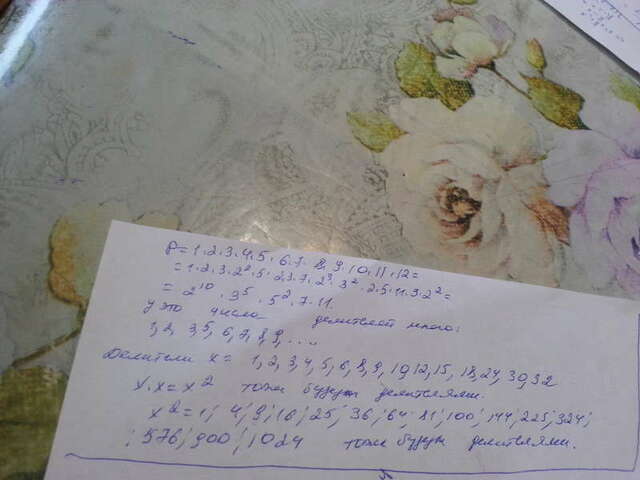 P=1·2·3·4·5·6·7·8·9·10·11·12=
=1·2·3·2²·5·2·3·7·2³·3²·2·5·11·3·2²=
=2¹⁰·3⁵·5²·7·11.
У это числа делителей много:
1, 2, 3, 5, 6, 7, 8, 9, ....
Делители x = 1, 2, 3, 4, 5, 6, 8, 9, 10, 12, 15, 18, 24, 30, 32
x·x = x² тоже будут делителями.
x² = 1; 4; 9; 16; 25; 36; 64; 81; 100; 144; 225; 324;
; 576; 900; 1024 тоже будут делителями.